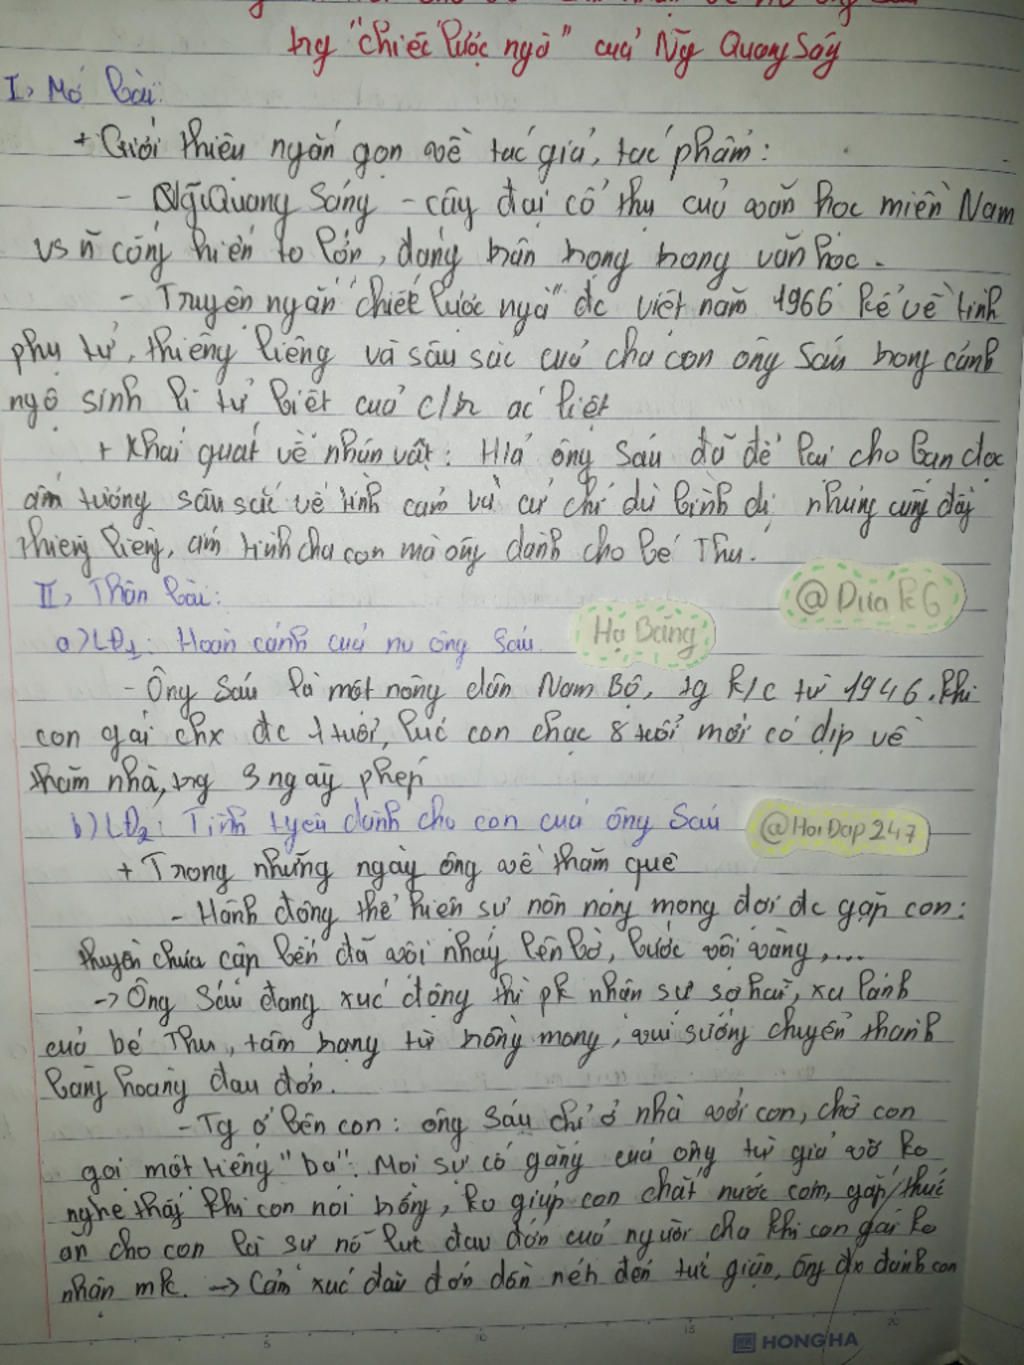 trg "chiếc lược ngà" của Ng Quang Sáng
I, Mở bài:
+ Giới thiệu ngắn gọn về tác giả, tác phẩm:
- Ng Quang Sáng - cây đại cổ thụ của văn học miền Nam
vs ~ cống hiến to lớn, đáng trân trọng trong văn học.
- Truyện ngắn "chiếc lược ngà" đc viết năm 1966 kể về tình
phụ tử, thiêng liêng và sâu sắc của cha con ông Sáu trong cảnh
ngộ sinh li tử biệt của c/tr ác liệt
+ Khái quát về nhân vật: H/ả ông Sáu đã để lại cho bạn đọc
ấn tượng sâu sắc về tình cảm và cử chỉ dù bình dị nhưng cũng đầy
thiêng liêng, ấm tình cha con mà ông dành cho bé Thu.
II, Thân bài:
@Dưa PG
a) LĐ1: Hoàn cảnh của nv ông Sáu.
Hạ Băng
- Ông Sáu là một nông dân Nam Bộ, tg k/c từ 1946. Khi
con gái chx đc 1 tuổi, lúc con chạc 8 tuổi mới có dịp về
thăm nhà, trg 3 ngày phép
b) LĐ2: Tình tyêu dành cho con của ông Sáu
@HoiDap247
+ Trong những ngày ông về thăm quê
- Hành động thể hiện sự nôn nóng mong đợi đc gặp con:
thuyền chưa cập bến đã vội nhảy lên bờ, bước vội vàng,...
-> Ông Sáu đang xúc động thì pk nhận sự sợ hãi, xa lánh
của bé Thu, tâm trạng từ trông mong, vui sướng chuyển thành
bàng hoàng đau đớn.
- Tg ở bên con: ông Sáu chỉ ở nhà với con, chờ con
gọi một tiếng "ba". Mọi sự cố gắng của ông từ giả vờ ko
nghe thấy khi con nói trổng, ko giúp con chắt nước cơm, gắp thức
ăn cho con là sự nỗ lực đau đớn của người cha khi con gái ko
nhận mk. -> Cảm xúc đau đớn dồn nén đến tức giận, ông đánh con
HONG HA